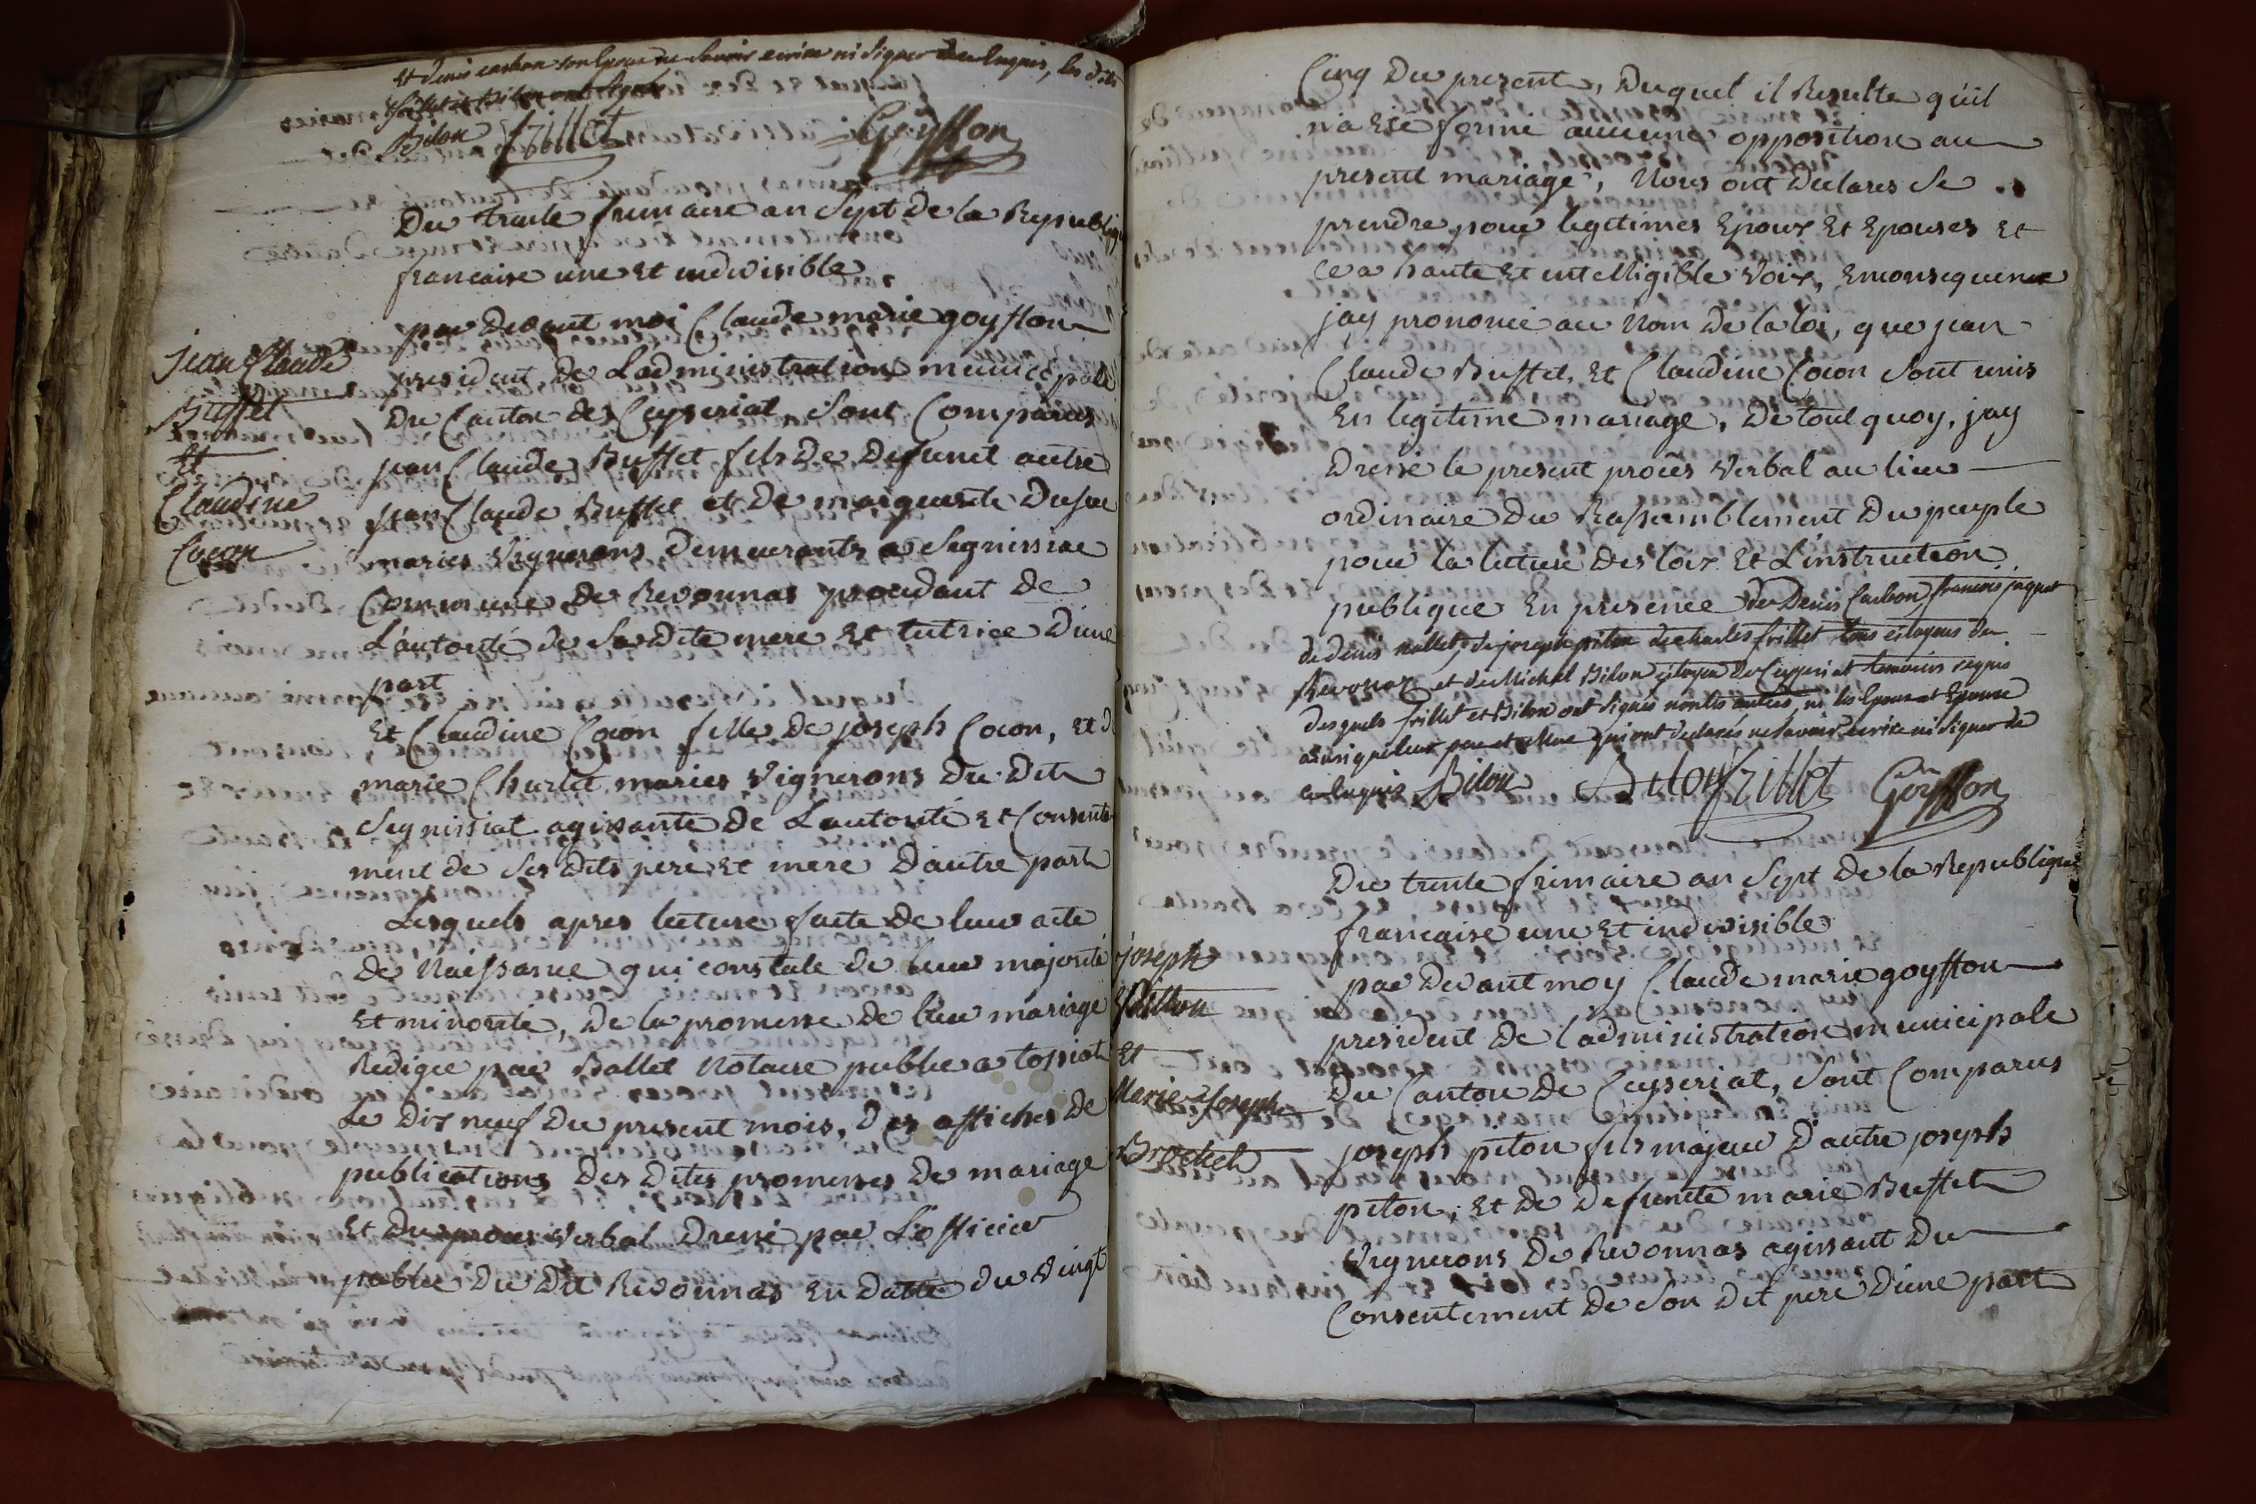 Et denis carbon son Epoux ne scavoir ecrire ni signer de ce Enquis, les dits
frillet et Bilon ont signé
Bilon frillet Goyffon
Du trente frimaire an Sept de la Republique
francaise une Et indivisible
par devant moi Claude marie goyffon
president de Ladministration municipale
Du Canton de Ceyseriat, sont Comparus
jean Claude Buffet fils de Defunct autre
jean Claude Buffet et de marguerite
maries vignerons Demeurants a Segnissiac
Commune de Revonnas procedant de
L'autorité de Sa Dite mere Et tutrice D'une
part
Et Claudine Cocon fille de joseph Cocon, Et d
marie Churlet maries vignerons du Dit
Segnissiat agissante de Lautorité Et Consente
ment de Ses Dits pere Et mere D'autre part
Lesquels apres lecture faite de leur acte
de Naissance qui constate de leur majorité
Et minorité, De la promesse de leur mariage
Redigée par Ballet Notaire public a tossiat
Le Dix neuf Du present mois, Des affiches de
publications Des Dites promesses de mariage
Et Du procès verbal Dressé par L'officier
public Du Dit Revonnas En Datte du vingt
jean Claude
Buffet
Et
Claudine
Cocon
Cinq Du present, Duquel il Resulte qu'il
n'a Eté formé aucune opposition au
present mariage, Nous ont Declarés Se
prendre pour legitimes Epoux Et Epouses Et
ce a haute Et intelligible Voix, Enconsequence
jay prononcé au Nom De la loi, que jean
Claude Buffet, Et Claudine Cocon Sont unis
En legitime mariage, De tout quoy, jay
Dressé le present procès Verbal au lieu
ordinaire Du Rassemblement Du peuple
pour la lecture Des loix Et L'instruction
publique En presence de Denis Carbon, francois jaquet
de denis mallet, de joseph piton de charles frillet tous citoyens de
Revonnaz et de Michel Bilon citoyen de Ceyseriat temoins requis
desquels frillet et Bilon ont signés non les autres, ni les Epoux et Epouse
ainsi que leur pere et Mere qui ont declarés ne savoir ecrire ni signer de
ce Enquis Bilon Bilon frillet Goyffon
Du trente frimaire an Sept De la Republique
francaise une Et indivisible
par Devant moy Claude marie goyffon
president De l'administration municipale
Du Canton De Ceyseriat, Sont Comparus
joseph piton fils majeur D'autre joseph
piton, Et De Defuncte marie Buffet
Vignerons De Revonnas agissant Du
Consentement De Son Dit pere D'une part
joseph
Pitton
Et
Marie joseph
Brochet